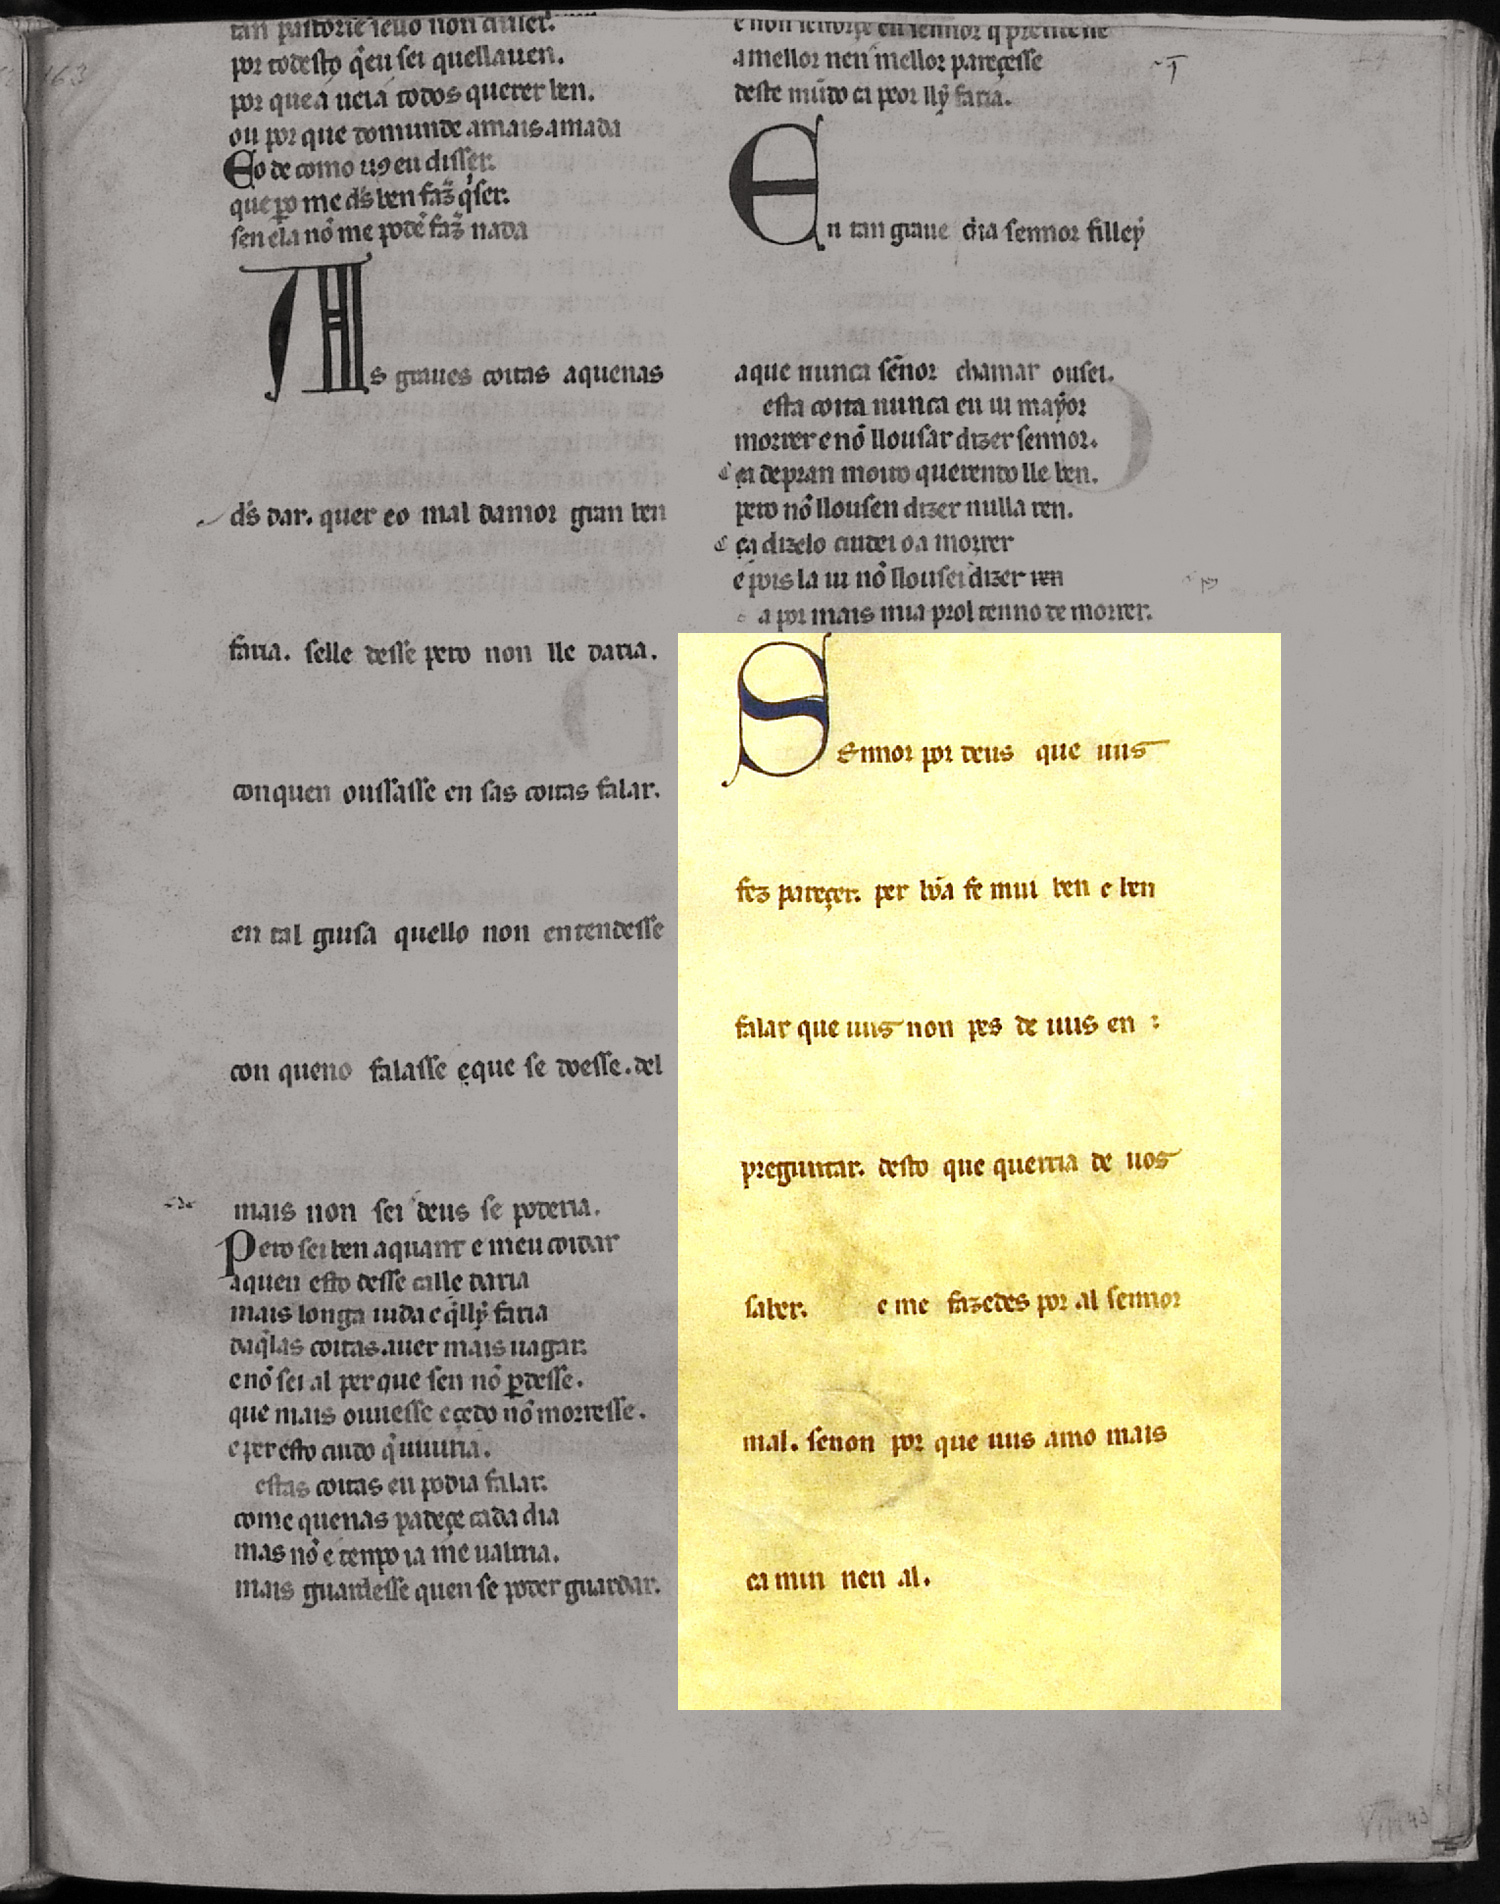 tan pastorie seuo non auer.
por todesto q̃eu sei quellauen.
por que a ueia todos querer ben.
ou por que do munde a mais amada
Eo de como uꝯ eu disser.
que ꝑo me d̃s ben faz̃ q̃ser.
sen ela nõ me podẽ faz̃ nada
As graues coitas aquenas
d̃s dar. quer eo mal damor gran ben
faria. selle desse pero non lle daria.
conquen oussasse en sas coitas falar.
en tal guisa quello non entendesse
con queno falasse eque se doesse. del
mais non sei deus se poderia.
Pero sei ben aquant e meu coidar
aquen esto desse calle daria
mais longa uida e q̃llẏ faria
daq̃las coitas auer mais uagar.
enõ sei al per que sen nõ ꝑdesse.
que mais ouuesse e çedo nõ morresse.
e per esto cuido q̃ uiuiria.
estas coitas eu podia falar.
come quenas padeçe cada dia
mas nõ e tempo ia me ualrria.
mais guardesse quen se poder guardar.
e non tenorꝫe en sennor q̃
a mellor nen mellor pareçesse
deste mũdo ca peor llẏ faria.
En tan graue dia sennor filleẏ
aque nunca sẽnor chamar ousei.
esta coita nunca eu ui maẏor
morrer e nõ llousar dizer sennor.
ca depran moiro querendo lle ben.
pero nõ llousen dizer nulla ren.
ca dizelo cuidei oa morrer
e pois la ui nõ llousei dizer ren
a por mais mia prol tenno de morrer.
Sennor por deus que uus
fez pareçer. per bõa fe mui ben e ben
falar que uus non pes de uus en :
preguntar. desto que querria de uos
saber. e me fazedes por al sennor
mal. senon por que uus amo mais
ca min nen al.